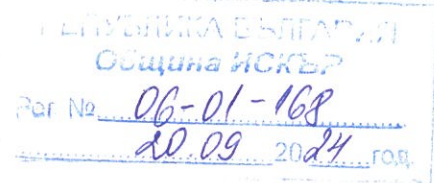 РЕПУБЛИКА БЪЛГАРИЯ
Община ИСКЪР
Рег № 06-01-168
20.09 2024 год.